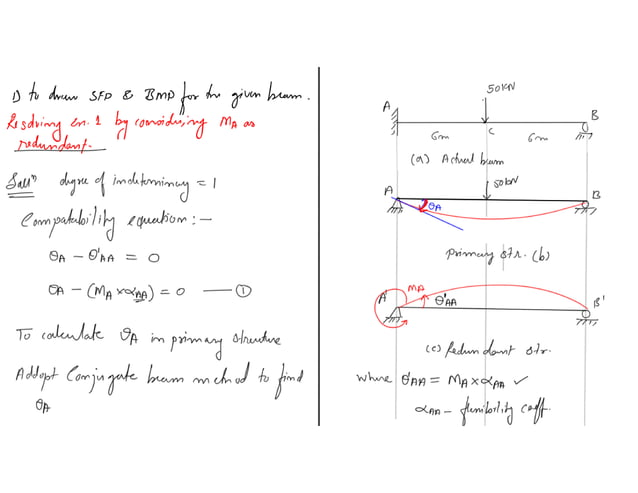 1) To draw SFD & BMD for the given beam.
Resolving en. 1 by considering MA as
redundant.
Sol^n degree of indeterminacy = 1
Compatability equation :-
θA - θ'AA = 0
θA - (MA × αAA) = 0 —— ①
To calculate θA in primary structure
Addopt Conjugate beam method to find
θA
50KN
A
B
C
6m 6m
(a) Actual beam
A
50KN
B
θA
primary str. (b)
MA
A'
θ'AA
B'
(c) Redundant str.
where θ'AA = MA × αAA ✓
αAA - flexibility coeff.